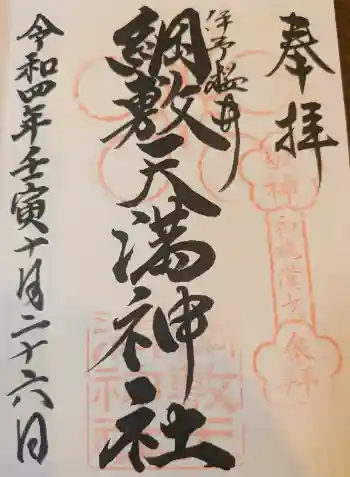 奉拝
伊予桜井
綱敷天満神社
令和四年壬寅十月二十六日